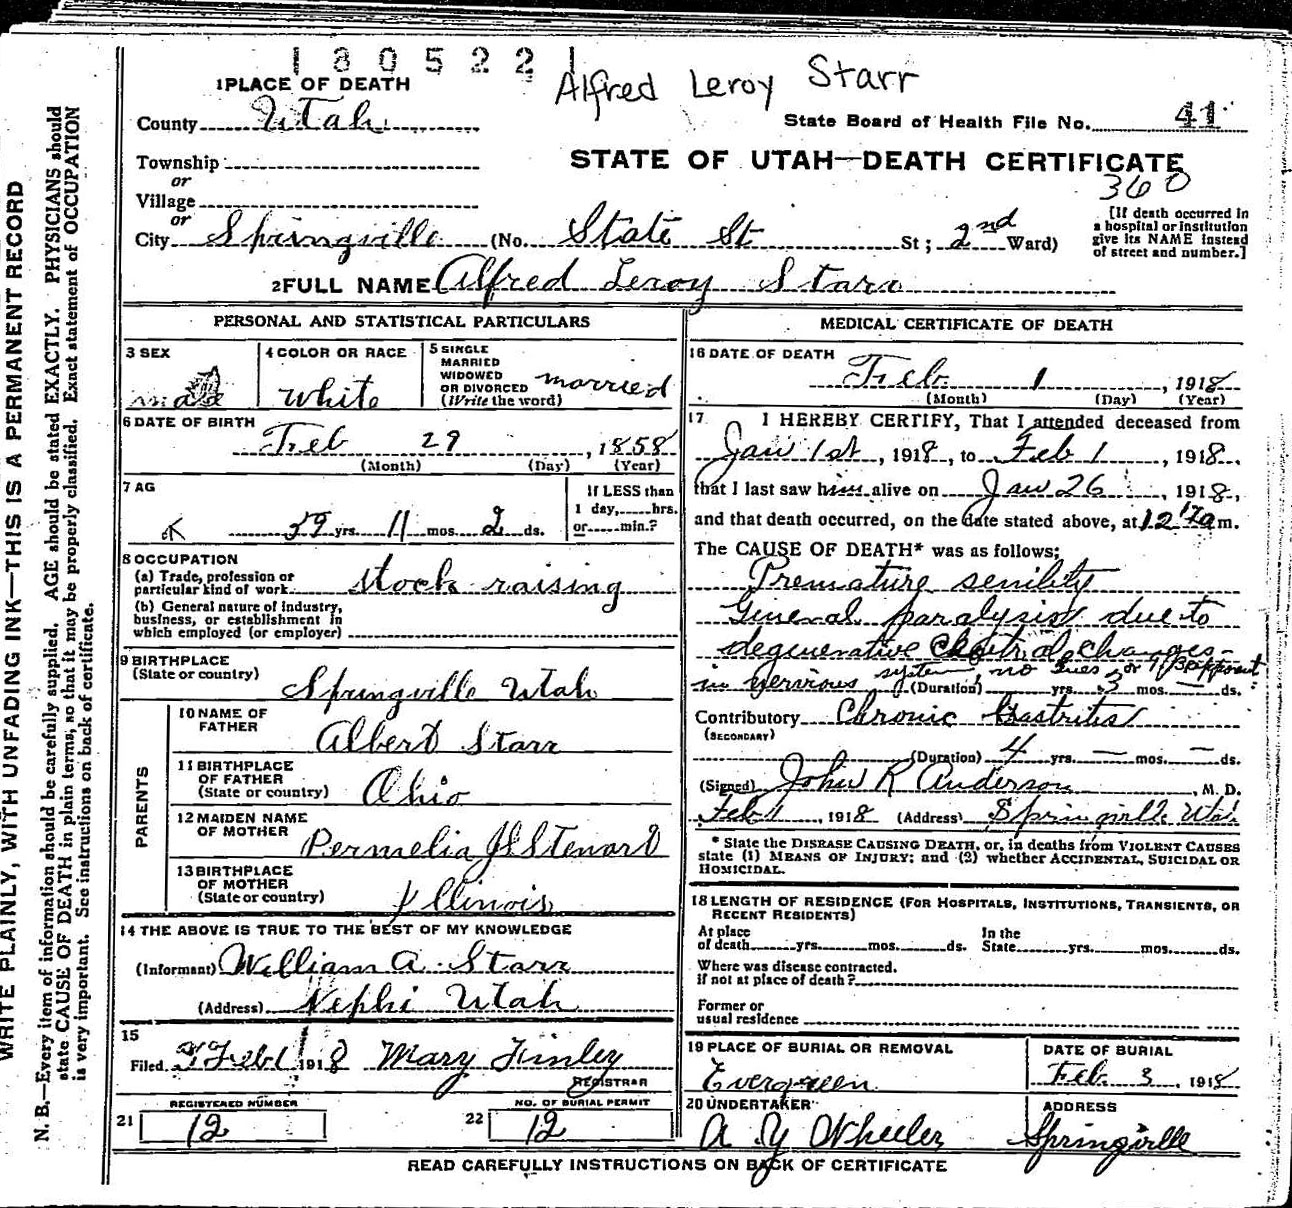 1 8 0 5 2 2 1
Alfred Leroy Starr
1 PLACE OF DEATH
County Utah
State Board of Health File No. 41
Township
or
STATE OF UTAH—DEATH CERTIFICATE
360
Village
or
City Springville (No. State St St; 2nd Ward)
[If death occurred in
a hospital or institution
give its NAME instead
of street and number.]
2 FULL NAME Alfred Leroy Starr
PERSONAL AND STATISTICAL PARTICULARS
3 SEX
male
4 COLOR OR RACE
white
5 SINGLE
MARRIED
WIDOWED
OR DIVORCED
(Write the word)
married
6 DATE OF BIRTH
Feb 29, 1858
(Month) (Day) (Year)
7 AG
59 yrs. 11 mos. 2 ds.
If LESS than
1 day,.....hrs.
or.....min.?
8 OCCUPATION
(a) Trade, profession or
particular kind of work stock raising
(b) General nature of industry,
business, or establishment in
which employed (or employer)
9 BIRTHPLACE
(State or country)
Springville Utah
PARENTS
10 NAME OF
FATHER
Albert Starr
11 BIRTHPLACE
OF FATHER
(State or country)
Ohio
12 MAIDEN NAME
OF MOTHER
Permelia
13 BIRTHPLACE
OF MOTHER
(State or country)
Illinois
14 THE ABOVE IS TRUE TO THE BEST OF MY KNOWLEDGE
(Informant) William A. Starr
(Address) Nephi Utah
15
Filed Feb 1 1918 Mary Finley
REGISTRAR
REGISTERED NUMBER
21 12
NO. OF BURIAL PERMIT
22 12
MEDICAL CERTIFICATE OF DEATH
16 DATE OF DEATH
Feb 1, 1918
(Month) (Day) (Year)
17 I HEREBY CERTIFY, That I attended deceased from
Jan 1st, 1918, to Feb 1, 1918.
that I last saw him alive on Jan 26, 1918,
and that death occurred, on the date stated above, at 12 a m.
The CAUSE OF DEATH* was as follows:
Premature senility
General paralysis due to
degenerative changes
in nervous system, no
(Duration) yrs. 3 mos. — ds.
Contributory Chronic Gastritis
(SECONDARY)
(Duration) 4 yrs. — mos. — ds.
(Signed) John R Anderson, M. D.
Feb 1, 1918 (Address) Springville Utah
* State the DISEASE CAUSING DEATH, or, in deaths from VIOLENT CAUSES
state (1) MEANS OF INJURY; and (2) whether ACCIDENTAL, SUICIDAL OR
HOMICIDAL.
18 LENGTH OF RESIDENCE (FOR HOSPITALS, INSTITUTIONS, TRANSIENTS, OR
RECENT RESIDENTS)
At place In the
of death.......yrs.......mos.......ds. State.......yrs.......mos.......ds.
Where was disease contracted.
if not at place of death?
Former or
usual residence
19 PLACE OF BURIAL OR REMOVAL
Evergreen
DATE OF BURIAL
Feb 3, 1918
20 UNDERTAKER
A Y Wheeler
ADDRESS
Springville
READ CAREFULLY INSTRUCTIONS ON BACK OF CERTIFICATE
WRITE PLAINLY, WITH UNFADING INK—THIS IS A PERMANENT RECORD
N. B.—Every item of information should be carefully supplied. AGE should be stated EXACTLY. PHYSICIANS should
state CAUSE OF DEATH in plain terms, so that it may be properly classified. Exact statement of OCCUPATION
is very important. See instructions on back of certificate.